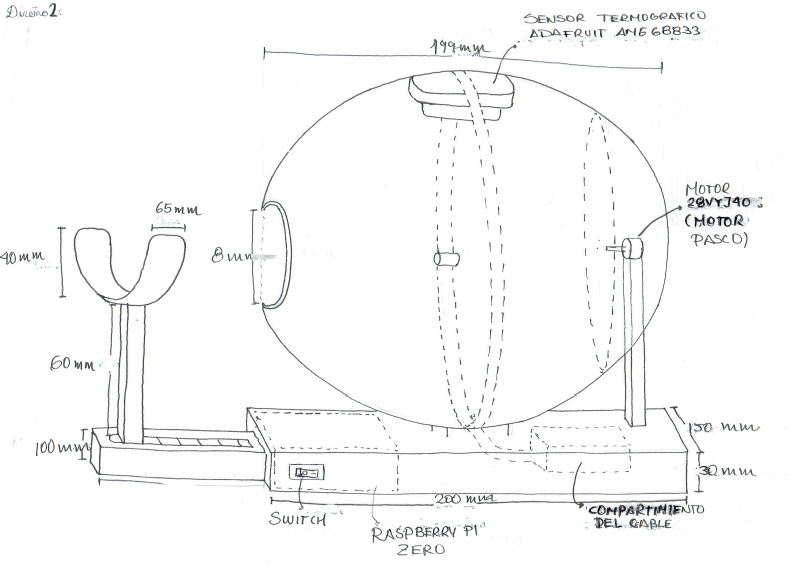 Diseño 2:
SENSOR TERMOGRAFICO
ADAFRUIT AMG68833
199mm
MOTOR
28VYJ40
(MOTOR
PASCO)
65mm
40mm
8mm
60mm
100mm
150 mm
30mm
200 mm
SWITCH
RASPBERRY PI
ZERO
COMPARTIMIENTO
DEL CABLE